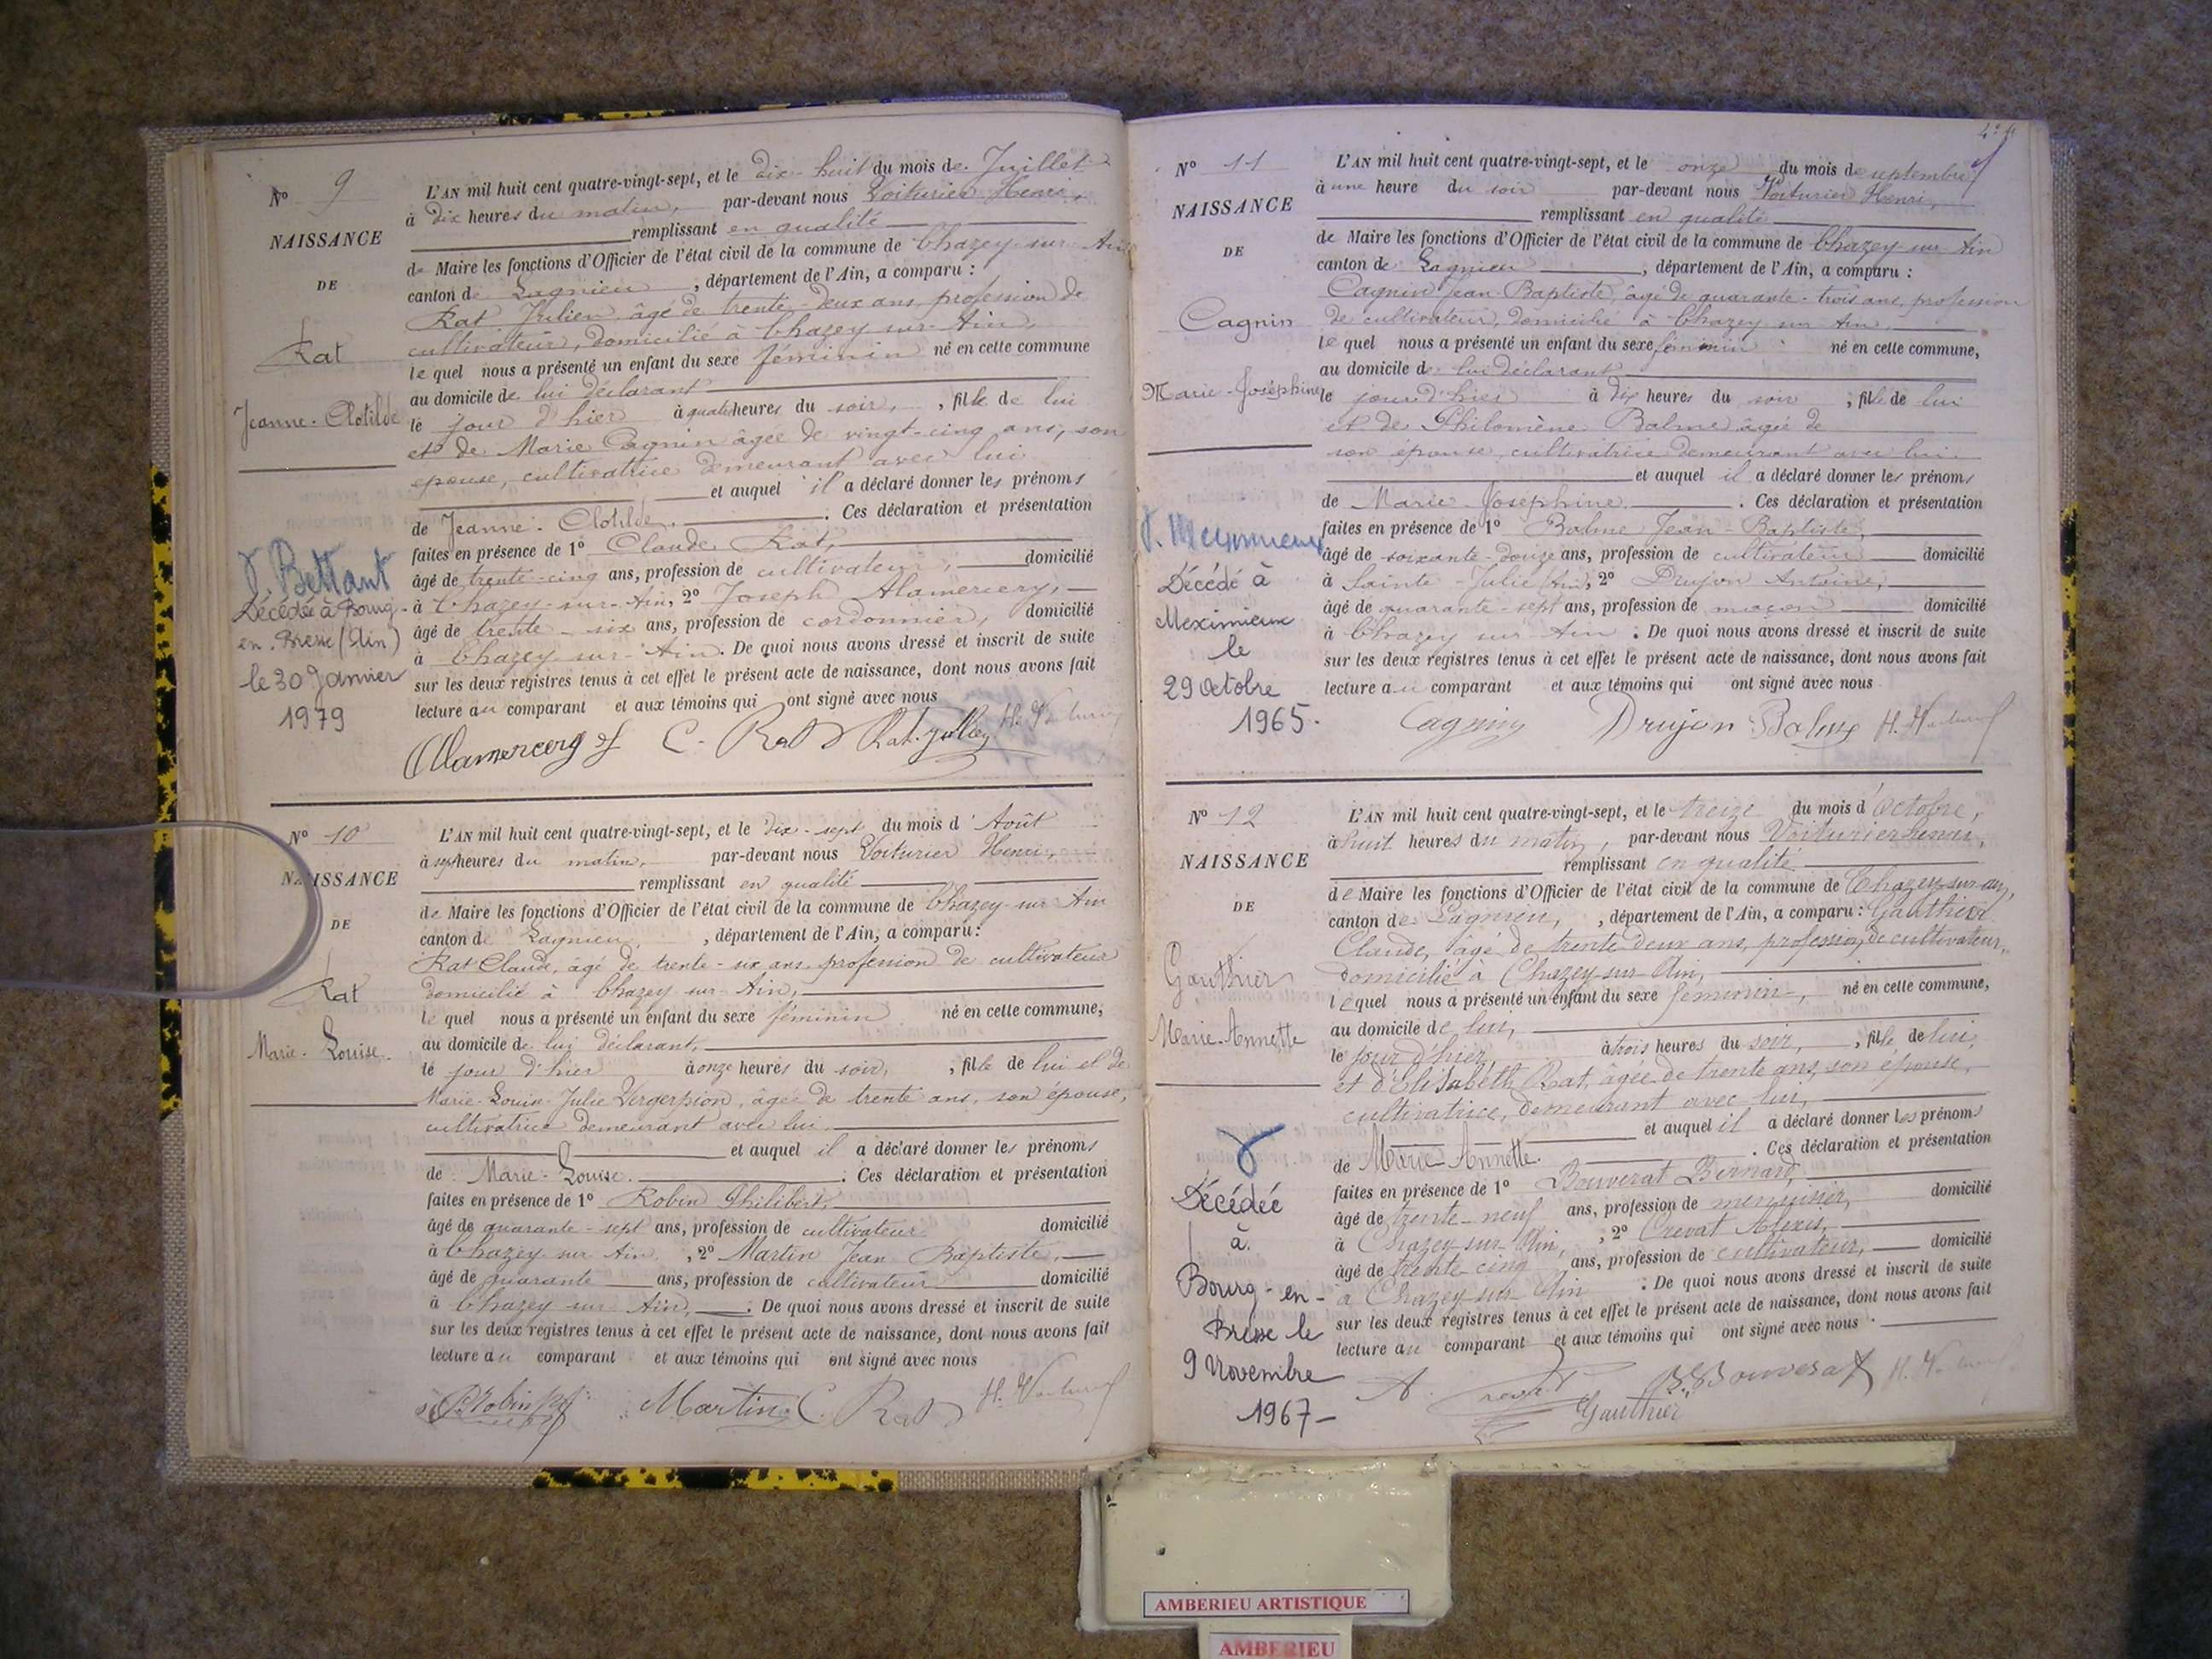 N° 9
NAISSANCE
DE
Rat
Jeanne-Clotilde
Bettant
Décédée à Bourg-
en-Bresse (Ain)
le 30 Janvier
1979
L'AN mil huit cent quatre-vingt-sept, et le dix-huit du mois de Juillet
à dix heures du matin, par-devant nous Voiturier Henri,
remplissant en qualité
de Maire les fonctions d'Officier de l'état civil de la commune de Chazey-sur-Ain
canton de Lagnieu, département de l'Ain, a comparu :
Rat Julien âgé de trente-deux ans, profession de
cultivateur, domicilié à Chazey-sur-Ain,
lequel nous a présenté un enfant du sexe féminin né en cette commune
au domicile de lui déclarant
le jour d'hier à quatre heures du soir, , fille de lui
et de Marie Cagnin âgée de vingt-cinq ans, son
épouse, cultivatrice demeurant avec lui
et auquel il a déclaré donner les prénoms
de Jeanne-Clotilde. Ces déclaration et présentation
faites en présence de 1° Claude Rat,
âgé de trente-cinq ans, profession de cultivateur, domicilié
à Chazey-sur-Ain, 2° Joseph Alamercery,
âgé de trente-six ans, profession de cordonnier, domicilié
à Chazey-sur-Ain. De quoi nous avons dressé et inscrit de suite
sur les deux registres tenus à cet effet le présent acte de naissance, dont nous avons fait
lecture au comparant et aux témoins qui ont signé avec nous
Alamercery C. Rat Rat Jullien
N° 10
NAISSANCE
DE
Rat
Marie-Louise.
L'AN mil huit cent quatre-vingt-sept, et le dix-sept du mois d'Août
à sept heures du matin, par-devant nous Voiturier Henri,
remplissant en qualité
de Maire les fonctions d'Officier de l'état civil de la commune de Chazey-sur-Ain
canton de Lagnieu, , département de l'Ain, a comparu:
Rat Claude, âgé de trente-six ans, profession de cultivateur
domicilié à Chazey-sur-Ain,
lequel nous a présenté un enfant du sexe féminin né en cette commune,
au domicile de lui déclarant,
le jour d'hier à onze heures du soir, , fille de lui et de
Marie-Louise-Julie Vergerpion, âgée de trente ans, son épouse,
cultivatrice demeurant avec lui
et auquel il a déclaré donner les prénoms
de Marie-Louise. Ces déclaration et présentation
faites en présence de 1° Robin Philibert,
âgé de quarante-sept ans, profession de cultivateur domicilié
à Chazey sur Ain, 2° Martin Jean Baptiste,
âgé de quarante ans, profession de cultivateur domicilié
à Chazey-sur-Ain. De quoi nous avons dressé et inscrit de suite
sur les deux registres tenus à cet effet le présent acte de naissance, dont nous avons fait
lecture au comparant et aux témoins qui ont signé avec nous
P. Robin Martin C. Rat
N° 11
NAISSANCE
DE
Cagnin
Marie-Joséphine
Décédé à
Meximieux
le
29 Octobre
1965.
L'AN mil huit cent quatre-vingt-sept, et le onze du mois de septembre
à une heure du soir par-devant nous Voiturier Henri,
remplissant en qualité
de Maire les fonctions d'Officier de l'état civil de la commune de Chazey-sur-Ain
canton de Lagnieu, département de l'Ain, a comparu :
Cagnin Jean-Baptiste, âgé de quarante-trois ans, profession
de cultivateur, domicilié à Chazey sur Ain,
lequel nous a présenté un enfant du sexe féminin né en cette commune,
au domicile de lui déclarant
le jour d'hier à dix heures du soir , fille de lui
et de Philomène Balme âgée de
son épouse, cultivatrice demeurant avec lui
et auquel il a déclaré donner les prénoms
de Marie Joséphine. Ces déclaration et présentation
faites en présence de 1° Balme Jean-Baptiste,
âgé de soixante-douze ans, profession de cultivateur domicilié
à Sainte-Julie (Ain), 2° Drujon Antoine,
âgé de quarante-sept ans, profession de maçon domicilié
à Chazey sur Ain. De quoi nous avons dressé et inscrit de suite
sur les deux registres tenus à cet effet le présent acte de naissance, dont nous avons fait
lecture au comparant et aux témoins qui ont signé avec nous
Cagnin Drujon Balme
N° 12
NAISSANCE
DE
Gauthier
Marie-Annette
Décédée
à
Bourg-en-
Bresse le
9 Novembre
1967-
L'AN mil huit cent quatre-vingt-sept, et le treize du mois d'Octobre,
à huit heures du matin, par-devant nous Voiturier Henri,
remplissant en qualité
de Maire les fonctions d'Officier de l'état civil de la commune de Chazey-sur-Ain,
canton de Lagnieu, , département de l'Ain, a comparu : Gauthier
Claude, âgé de trente deux ans, profession de cultivateur,
domicilié à Chazey-sur-Ain,
lequel nous a présenté un enfant du sexe féminin, né en cette commune,
au domicile de lui,
le jour d'hier, à trois heures du soir, , fille de lui,
et d'Elisabeth Rat, âgée de trente ans, son épouse,
cultivatrice, demeurant avec lui,
et auquel il a déclaré donner les prénoms
de Marie-Annette. Ces déclaration et présentation
faites en présence de 1° Bouverat Bernard,
âgé de trente-neuf ans, profession de menuisier, domicilié
à Chazey-sur-Ain, , 2° Crevat Alexis,
âgé de trente-cinq ans, profession de cultivateur, domicilié
à Chazey-sur-Ain. De quoi nous avons dressé et inscrit de suite
sur les deux registres tenus à cet effet le présent acte de naissance, dont nous avons fait
lecture au comparant et aux témoins qui ont signé avec nous.
A. Crevat Gauthier B. Bouverat
AMBERIEU ARTISTIQUE
AMBERIEU